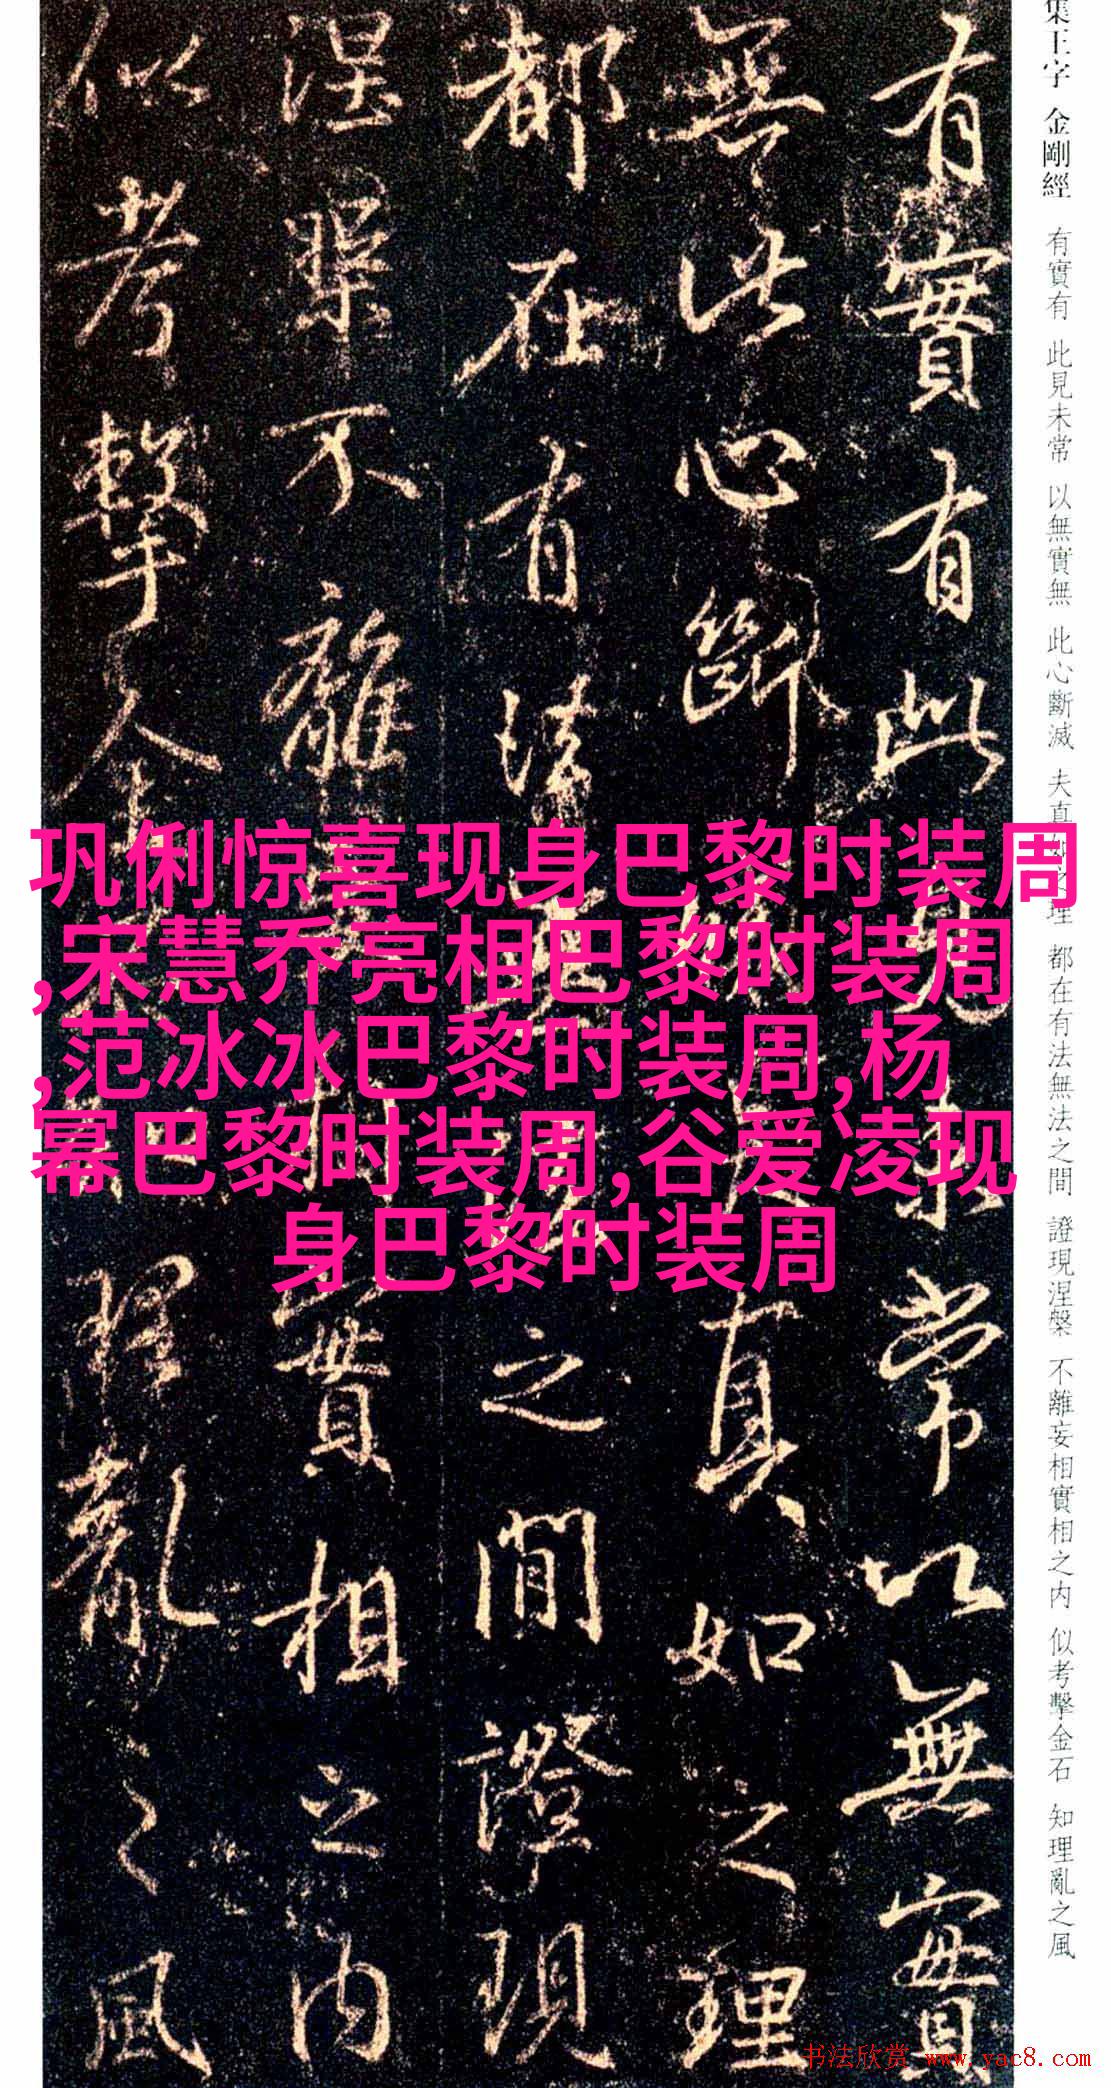 集王字 金剛經 有實有 此見未常 以無實無 此心斷滅 夫真如之理 都在有法無法之間 證現涅槃 不離妄相實相之内 似考擊金石 知理亂之風
有實有此見未常以無實
無此心斷滅夫真如之理
都在有法無法之間證現
涅槃不離妄相實相之内
似考擊金石知理亂之風
巩俐惊喜现身巴黎时装周
,宋慧乔亮相巴黎时装周
,范冰冰巴黎时装周,杨
幂巴黎时装周,谷爱凌现
身巴黎时装周
书法欣赏 www.yac8.com